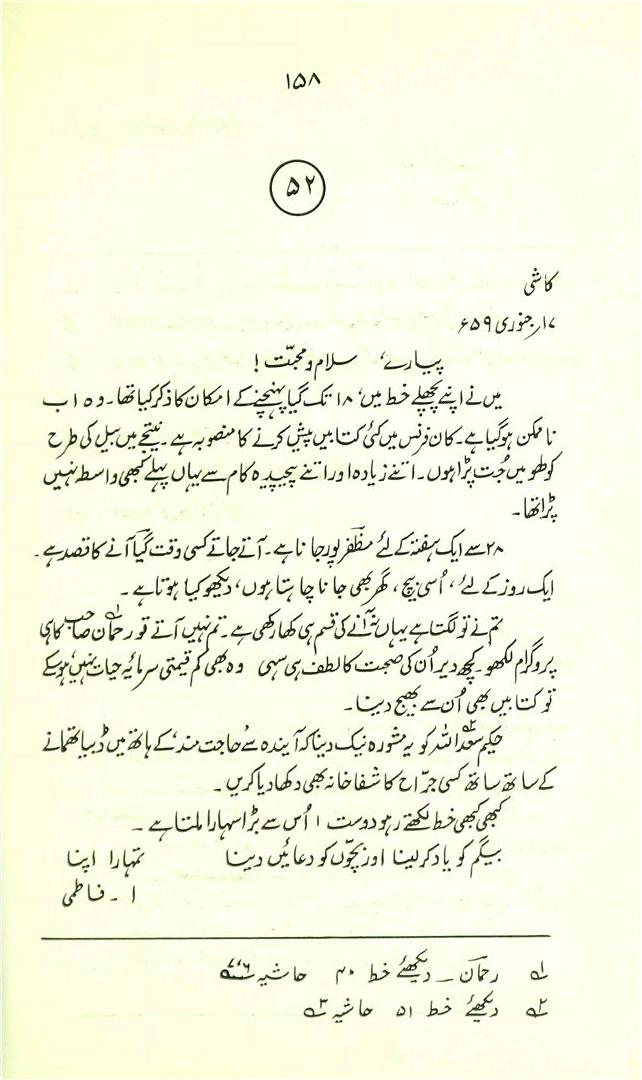 ۱۵۸
۵۲
کاشی
۱۷؍ جنوری ۶۵۹
پیارے، سلام و محبّت!
میں نے اپنے پچھلے خط میں، ۱۸ تک گیا پہنچنے کے امکان کا ذکر کیا تھا۔ وہ اب
نا ممکن ہو گیا ہے۔ کان فرنس میں کئی کتابیں پیش کرنے کا منصوبہ ہے۔ نتیجے میں بیل کی طرح
کولھو میں جُت پڑا ہوں۔ اتنے زیادہ اور اتنے پیچیدہ کام سے یہاں پہلے کبھی واسطہ نہیں
پڑا تھا۔
۲۸ سے ایک ہفتہ کے لئے مظفر پور جانا ہے۔ آتے جاتے کسی وقت گیا آنے کا قصد ہے۔
ایک روز کے لئے، اُسی بیچ، گھر بھی جانا چاہتا ہوں، دیکھو کیا ہوتا ہے۔
تم نے تو لگتا ہے یہاں نہ آنے کی قسم ہی کھا رکھی ہے۔ تم نہیں آتے تو رحمان صاحب کا ہی
پروگرام لکھو۔ کچھ دیر اُن کی صحبت کا لطف ہی سہی وہ بھی کم قیمتی سرمایۂ حیات نہیں، ہو سکے
تو کتابیں بھی اُن سے بھیج دینا۔
حکیم سعد اللہ کو یہ مشورہ نیک دینا کہ آیندہ سے حاجت مند، کے ہاتھ میں ڈبیا تھمانے
کے ساتھ ساتھ کسی جرّاح کا شفا خانہ بھی دکھا دیا کریں۔
کبھی کبھی خط لکھتے رہو دوست ! اُس سے بڑا سہارا ملتا ہے۔
بیگم کو یاد کر لینا اور بچّوں کو دعائیں دینا تمہارا اپنا
ا۔ فاطمی
۱؎ رحمان۔ دیکھئے خط ۴۰ حاشیہ ۷،۶؎
۲؎ دیکھئے خط ۵۱ حاشیہ ۳؎